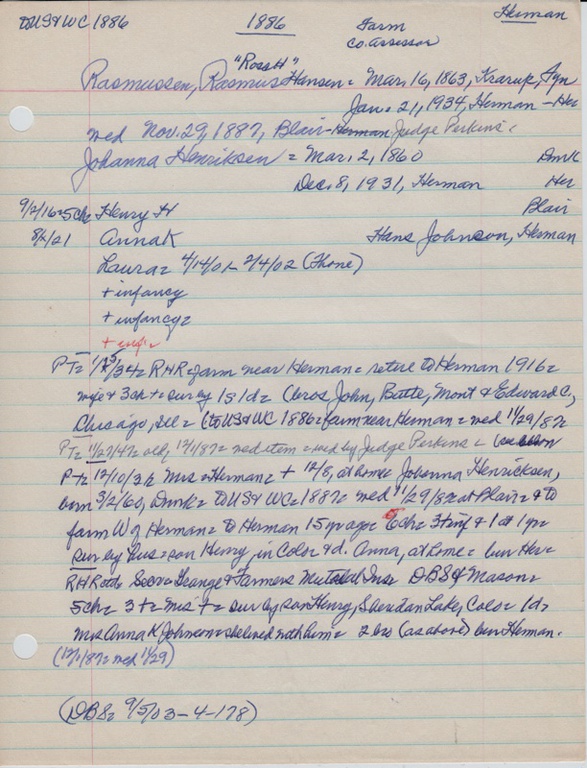 to US & WC 1886 1886 Farm Herman
Co. Assessor
"Ross H"
Rasmussen, Rasmus Hansen = Mar. 16, 1863, Krarup, Fyn
Jan. 21, 1934, Herman - Her
med Nov. 29, 1887, Blair - Herman Judge Perkins =
Johanna Henriksen = Mar. 2, 1860 Dmk
Dec. 8, 1931, Herman Her
9/2/16 = 5 ch = Henry H Blair
8/2/21 Anna K Hans Johnson, Herman
Laura = 4/14/01 - 2/4/02 (Thone)
+ infancy
+ infancy =
+ inf =
PT = 1/25/34 = RHR = farm near Herman = retire to Herman 1916 =
wife & 3 ch + = sur by 1s 1d = (bros John, Butte, Mont & Edward C,
Chicago, Ill = (to US & WC 1886 = farm near Herman = med 11/29/87
PT = 11/27/47 = old, 12/1/87 = med item = med by Judge Perkins =
PT = 12/10/31 = Mrs = Herman = + 12/8, at home = Johanna Henricksen,
born 3/2/60, Dmk = to US & WC = 1887 = med 11/29/87 at Blair = & to
farm W of Herman = to Herman 15 yr ago = 6 ch = 3 + inf & 1 at 1 yr =
sur by hus = son Henry, in Colo = & d. Anna, at home = bur Her =
RHR = Sec = Grange & Farmers Mutual Ins = DBS & Mason =
5 ch = 3 + = Mrs + = sur by son Henry, Sheridan Lake, Colo = 1d =
Mrs Anna K Johnson = she lived with him = 2 bro (as above) bur Herman.
(12/1/87 = med 11/29)
(DBS = 9/5/03 - 4 - 178)